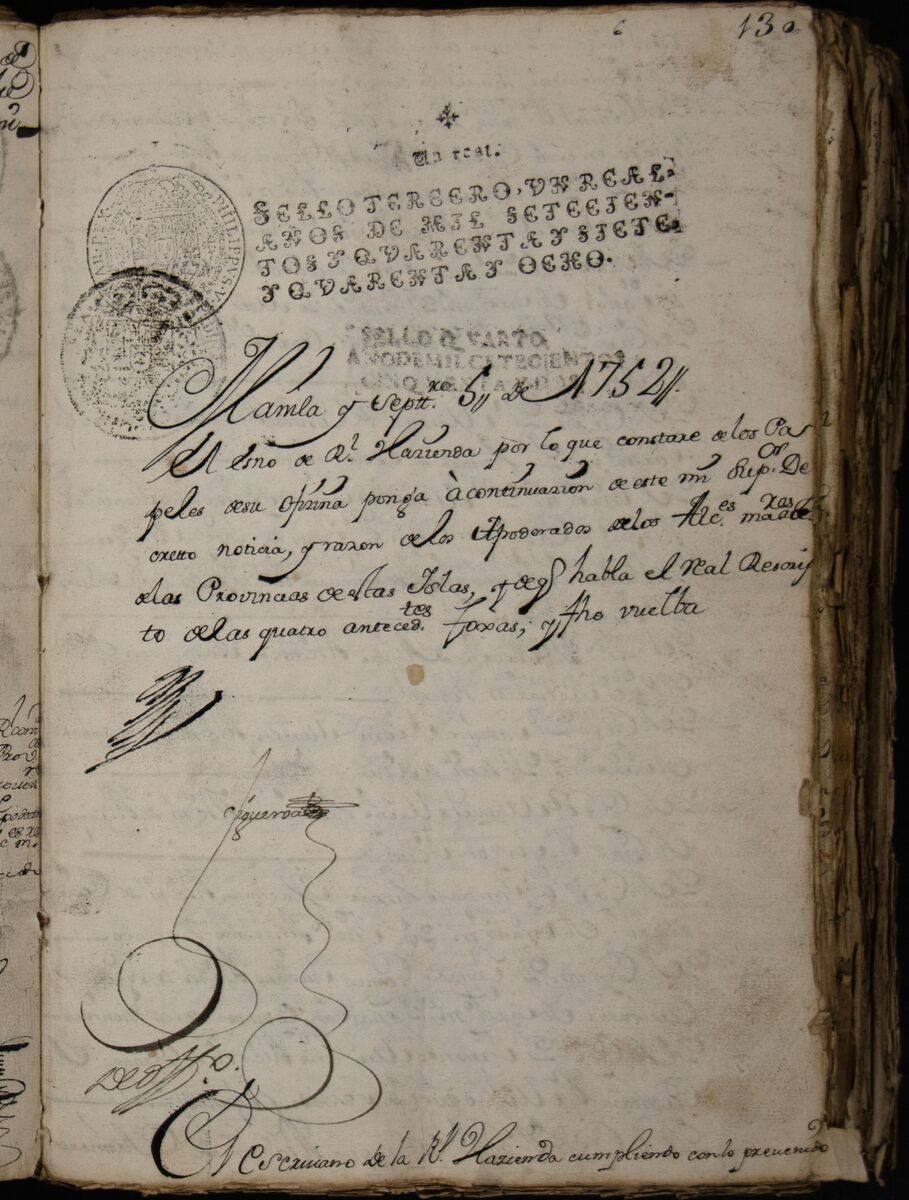 130
Un real.
SELLO TERCERO, UN REAL,
AÑOS DE MIL SETECIEN-
TOS Y QVARENTA Y SIETE
Y QVARENTA Y OCHO.
SELLO QVARTO
AÑO DE MIL SETECIENTOS
PHILIPPVS V
Manila y Septtre. 5,, de 1752,,
El esno de Rl. Hazienda por lo que constare de los Pa
peles de su ofizina ponga à continuazion de este mi Supor. De
cretto noticia, y razon de los Apoderados de los Alces. maxes
de las Provincias de estas Islas, y de q habla el real Rescrip
to de las quatro antecedtes. foxas; y fho vuelta
Figueroa
de offo.
El escrivano de la Rl. Hazienda cumpliendo con lo prevenido